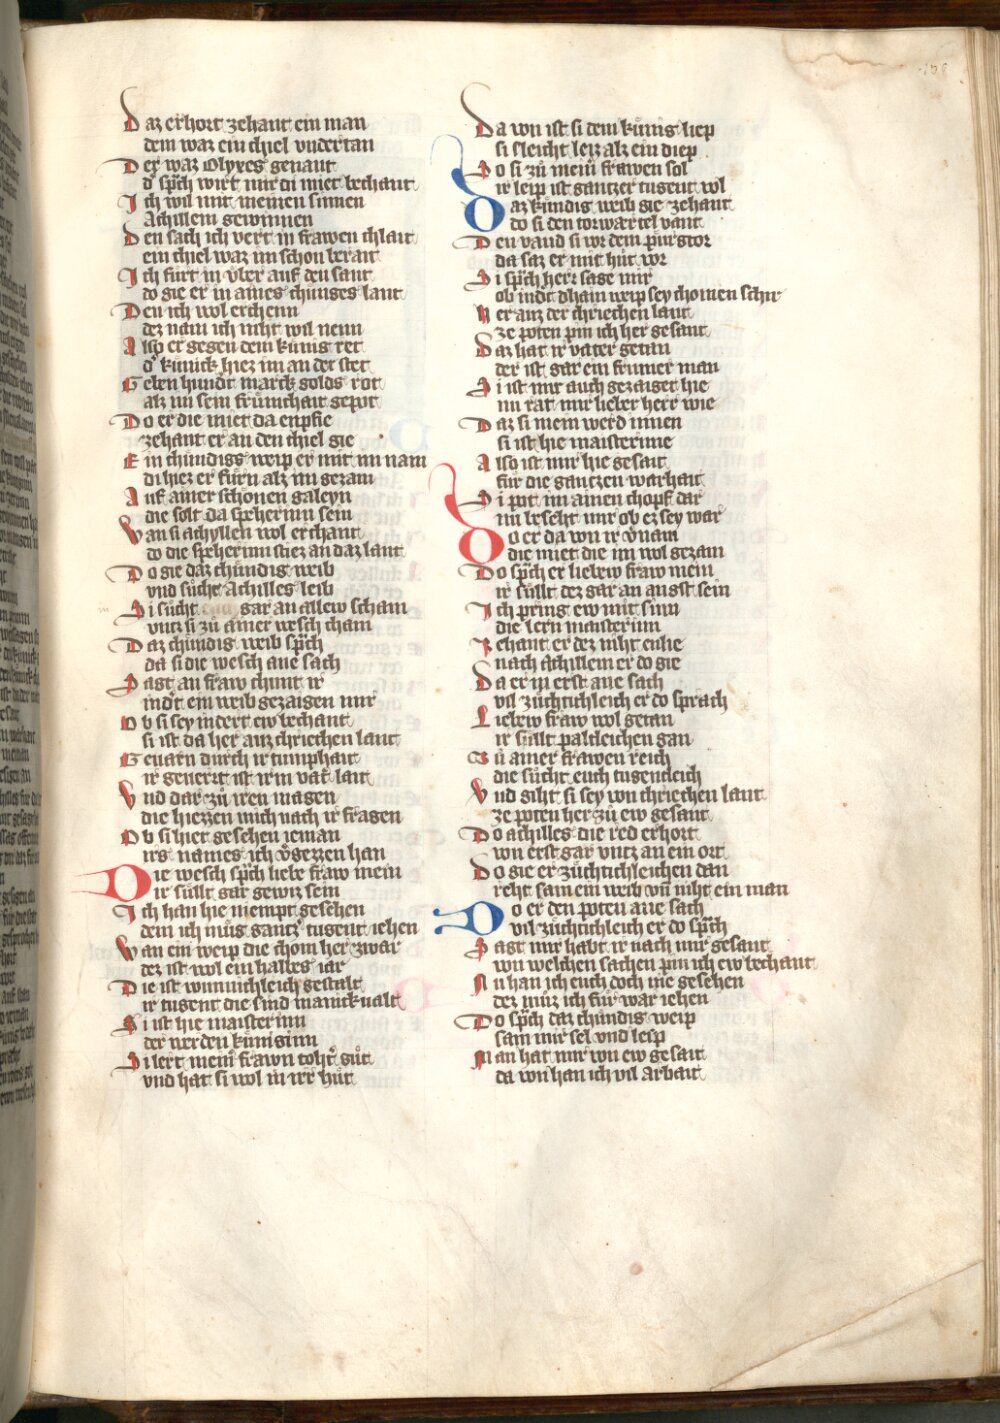 Daz erhort zehant ein man
dem waz ein chiel vndertan
Der waz Olyxes genant
d' sp̄ch wirt mir di miet bechant
Ich wil mit meinen sinnen
Achillem gewinnen
Den sach ich vert in frawen chlait
ein chiel waz im schon berait
Ich fůrt in vͤber auf den sant
do gie er in aines chůniges lant
Den ich wol erchenn
dez nam ich niht wil nenn
Also er gegen dem kůnig ret
d' kůnick hiez im an der stet
Geben hundͦt marck golds rot
alz im sein frůmchait gepot
Do er die miet da enpfie
zehant er an den chiel gie
Ein chůndigs weip er mit im nam
di hiez er fůrn alz im gezam
Auf ainer schonen galeyn
die solt da speherinn sein
Wan si achyllen wol erchant
do die speherinn stiez an daz lant
Do gie daz chůndig weib
vnd sůcht Achilles leib
Si sůcht gar an allew scham
vntz si zů ainer wesch cham
Daz chůndig weib sp̄ch
da si die wesch ane sach
Sagt an fraw chunt ir
indͦt ein weib gezaigen mir
Ob si sey indert ew bechant
si ist da her auz chriechen lant
Geuarn durch ir tumphait
ir geuert ist irm vatͦ lait
Vnd dar zů iren magen
die hiezzen mich nach ir fragen
Ob si hiet gesehen ieman
irs names ich vͦgezzen han
Die wesch sp̄ch liebe fraw mein
ir sůllt gar gewiz sein
Ich han hie niempt gesehen
dem ich můg gantzͦ tugent iehen
Wan ein weip die chom her zwar
dez ist wol ein halbes iar
Die ist wunnichleich gestalt
ir tugent die sind manickualt
Si ist hie maisterinn
der werden kůniginn
Si lert meinͦ frawn tohtͦ gůt
vnd hat si wol in irr hůt
Da von ist si dem kůnig liep
si sleicht leiz alz ein diep
So si zů meinͦ frawen sol
ir leip ist gantzer tugent vol
Daz kůndig weib gie zehant
do si den torwærtel vant
Den vand si vor dem purgtor
da saz er mit hůt vor
Si sp̄ch herr sage mir
ob indͦt dhain weip sey chomen schir
Her auz der chriechen lant
ze poten pin ich her gesant
Daz hat ir vater getan
der ist gar ein frumer man
Si ist mir auch gezaiget hie
nu rat mir lieber herr wie
Daz si mein werd innen
si ist hie maisterinne
Also ist mir hie gesait
fůr die gantzen warhait
Si pot im ainen chopf dar
nu beseht mir ob ez sey war
Do er da von ir vͦnam
die miet die im wol gezam
Do sp̄ch er liebew fraw mein
ir sůllt dez gar an angst sein
Ich pring ew mit sinn
die lern maisterinn
Zehant er dez niht enlie
nach Achillem er do gie
Da er in erst ane sach
vil zůchtichleich er do sprach
Liebew fraw wol getan
ir sůllt paltleichen gan
Zů ainer frawen reich
die sůcht euch tugenleich
Vnd giht si sey von chriechen lant
ze poten her zů ew gesant
Do achilles die red erhort
von erst gar vntz an ein ort
Do gie er zůchtichleichen dan
reht sam ein weib vn̄ niht ein man
Do er den poten ane sach
vil zůchtichleich er do sp̄ch
Sagt mir habt ir nach mir gesant
von welchen sachen pin ich ew bechant
Nu han ich euch doch nie gesehen
dez můz ich fůr war iehen
Do sp̄ch daz chůndig weip
sam mir sel vnd leip
Man hat mir von ew gesait
da von han ich vil arbait